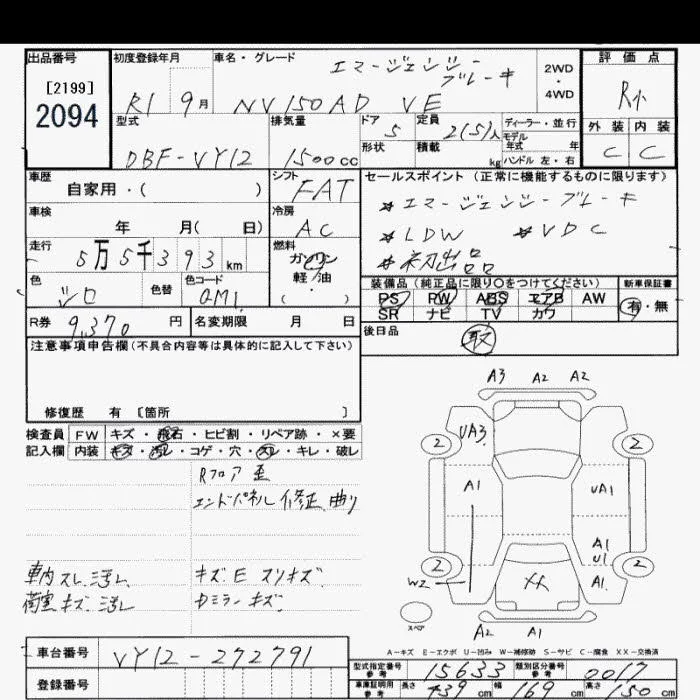 出品番号
[2199]
2094
初度登録年月
R1 9月
車名・グレード
エマージェンシー
ブレーキ
NV150AD VE
2WD
・
4WD
評価点
R小
外装 内装
C C
型式
DBF-VY12
排気量
1500cc
ドア
5
形状
定員
2(5)人
積載
kg
ディーラー・並行
モデル
年式 年
ハンドル 左・右
車歴
自家用・( )
シフト
FAT
セールスポイント (正常に機能するものに限ります)
*エマージェンシーブレーキ
*LDW *VDC
*初出品
車検
年 月( 日)
冷房
AC
走行
5万5千393km
燃料
ガソリン
軽・油
( ・ )
色
シロ
色替
色コード
QM1
装備品(純正品に限り○をつけてください)
PS PW ABS エアB AW
SR ナビ TV カワ
新車保証書
有・無
R券
9,370円
名変期限 月 日
後日品
取
注意事項申告欄(不具合内容等は具体的に記入して下さい)
修復歴 有 [箇所 ]
検査員 FW キズ・飛石・ヒビ割・リペア跡・×要
記入欄 内装 キズ・汚レ・コゲ・穴・スレ・キレ・破レ
Rフロア 歪
エンドパネル 修正、曲り
車内スレ、汚レ
荷室キズ、汚レ
キズ・E スリキズ
Dミラーキズ
A3 A2 A2
UA3
2 2
A1 UA1
A1
U1
2 2
W2 XX A1
スペア
A2 A1
A-キズ E-エクボ U-凹み W-補修跡 S-サビ C-腐食 XX-交換済
車台番号
VY12-272791
登録番号
型式指定番号
参考
15633
類別区分番号
参考
0017
車庫証明用
参考
長さ 439cm 幅 169cm 高さ 150cm